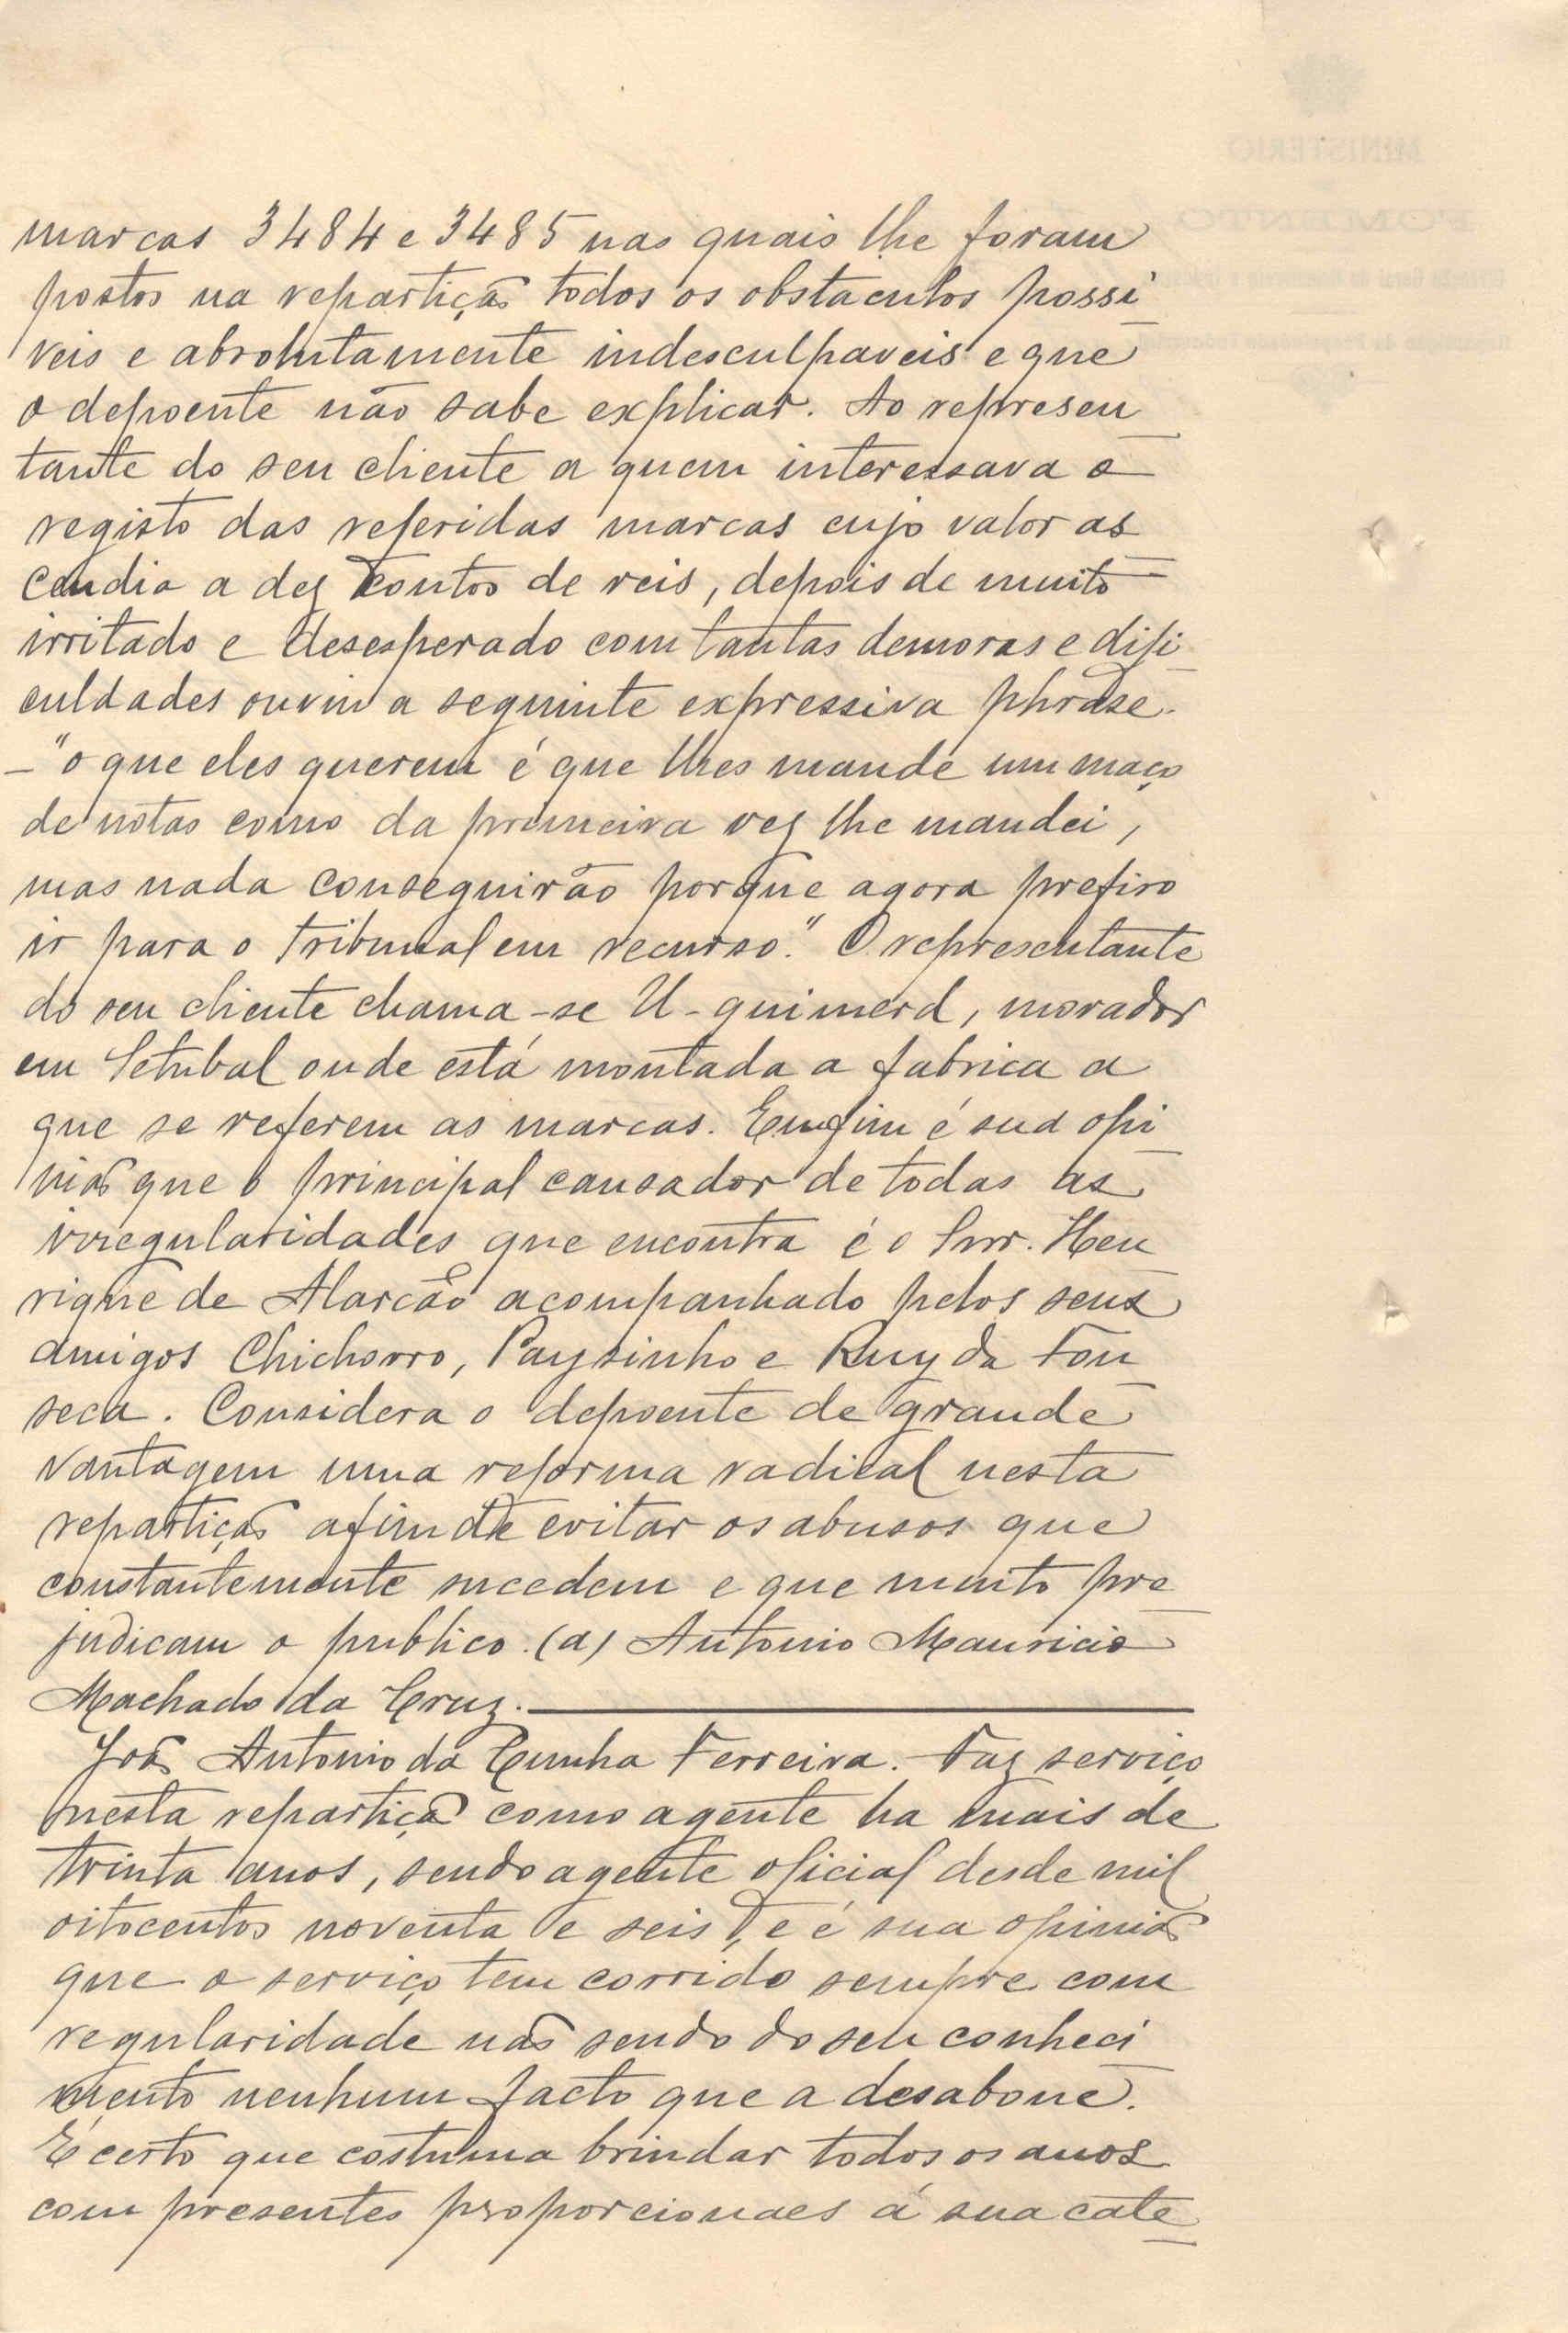 marcas 3484 e 3485 nas quais lhe foram
postos na repartição todos os obstaculos possi
veis e absolutamente indesculpaveis e que
o depoente não sabe explicar. Ao represen
tante do seu cliente a quem interessava o
registo das referidas marcas cujo valor as
cendia a dez contos de reis, depois de muito
irritado e desesperado com tantas demoras e difi
culdades ouviu a seguinte expressiva phrase.
– "o que eles querem é que lhes mande um maço
de notas como da primeira vez lhe mandei,
mas nada conseguirão porque agora prefiro
ir para o tribunal em recurso." O representante
do seu cliente chama-se U-guimerd, morador
em Setubal onde está montada a fabrica a
que se referem as marcas. Emfim é sua opi
nião que o principal causador de todas as
irregularidades que encontra é o Snr. Hen
rique de Alarcão acompanhado pelos seus
amigos Chichorro, Paysinho e Ruy da Fon
seca. Considera o depoente de grande
vantagem uma reforma radical nesta
repartição afim de evitar os abusos que
constantemente sucedem e que muito pre
judicam o publico. (a) Antonio Mauricio
Machado da Cruz.
João Antonio da Cunha Ferreira. Faz serviço
nesta repartição como agente ha mais de
trinta anos, sendo agente oficial desde mil
oitocentos noventa e seis, e é sua opinião
que o serviço tem corrido sempre com
regularidade não sendo do seu conheci
mento nenhum facto que a desabone.
É certo que costuma brindar todos os anos
com presentes proporcionaes á sua cate
MINISTERIO